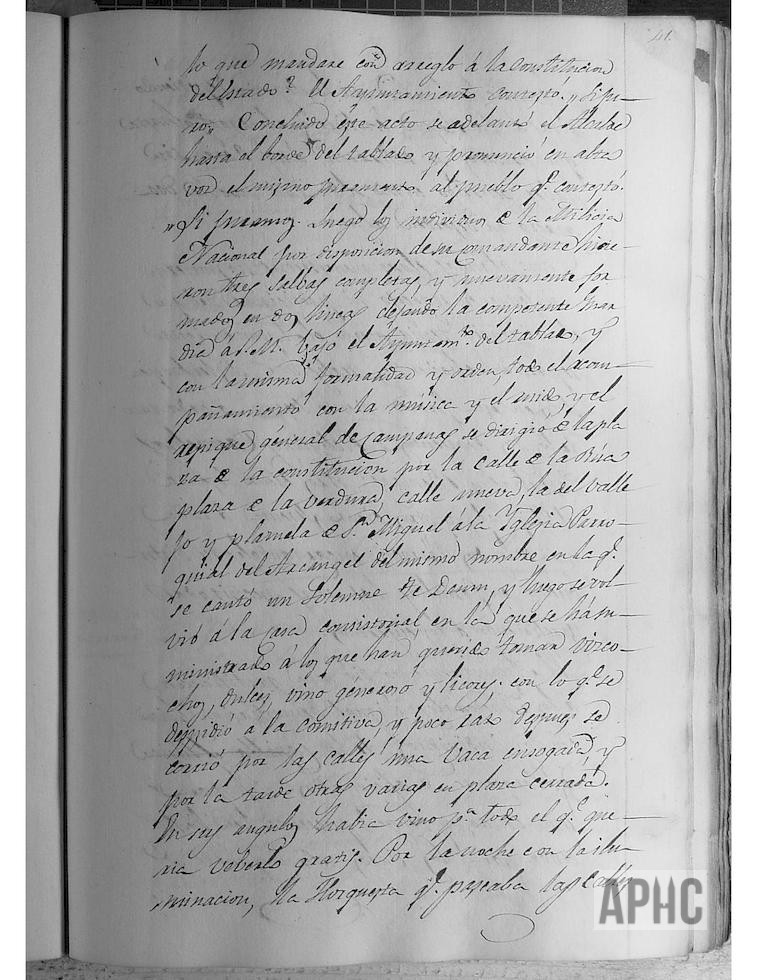 41.
lo que mandare con arreglo á la Constitucion
del Estado? El Ayuntamiento contestó. "Si ju-
ro". Concluido este acto se adelantó el Alcalde
hasta el borde del tablado y pronunció en alta
voz el mismo juramento al pueblo qe. contestó.
"Si juramos. Luego los individuos de la Milicia
Nacional por disposicion de su Comandante hicie-
ron tres salbas completas, y nuevamente for
mados en dos lineas dejando la competente Guar
dia á S. M. bajó el Ayuntamto. del tablado, y
con la misma formalidad y orden, todo el acom-
pañamiento con la música y el ruido, y el
repique general de campanas se dirigió de la pla
za de la constitucion por la calle de la Rúa
plaza de la verdura, calle nueva, la del valle
jo y plazuela de Sn. Miguel á la Yglesia Parro-
quial del Arcangel del mismo nombre en la qe.
se cantó un Solemne Te Deum, y luego se vol-
vió á la casa consistorial en la que se há su-
ministrado á los que han querido tomar vizco-
chos, dulces, vino generoso y licores; con lo qe. se
despidió á la comitiva, y poco rato despues se
corrió por las calles una Vaca ensogada, y
por la tarde otras varias en plaza cerrada.
En sus angulos habia vino pa. todo el qe. que-
ria veberlo gratis. Por la noche con la ilu-
minacion, la Horquesta qe. paseaba las calles
APHC